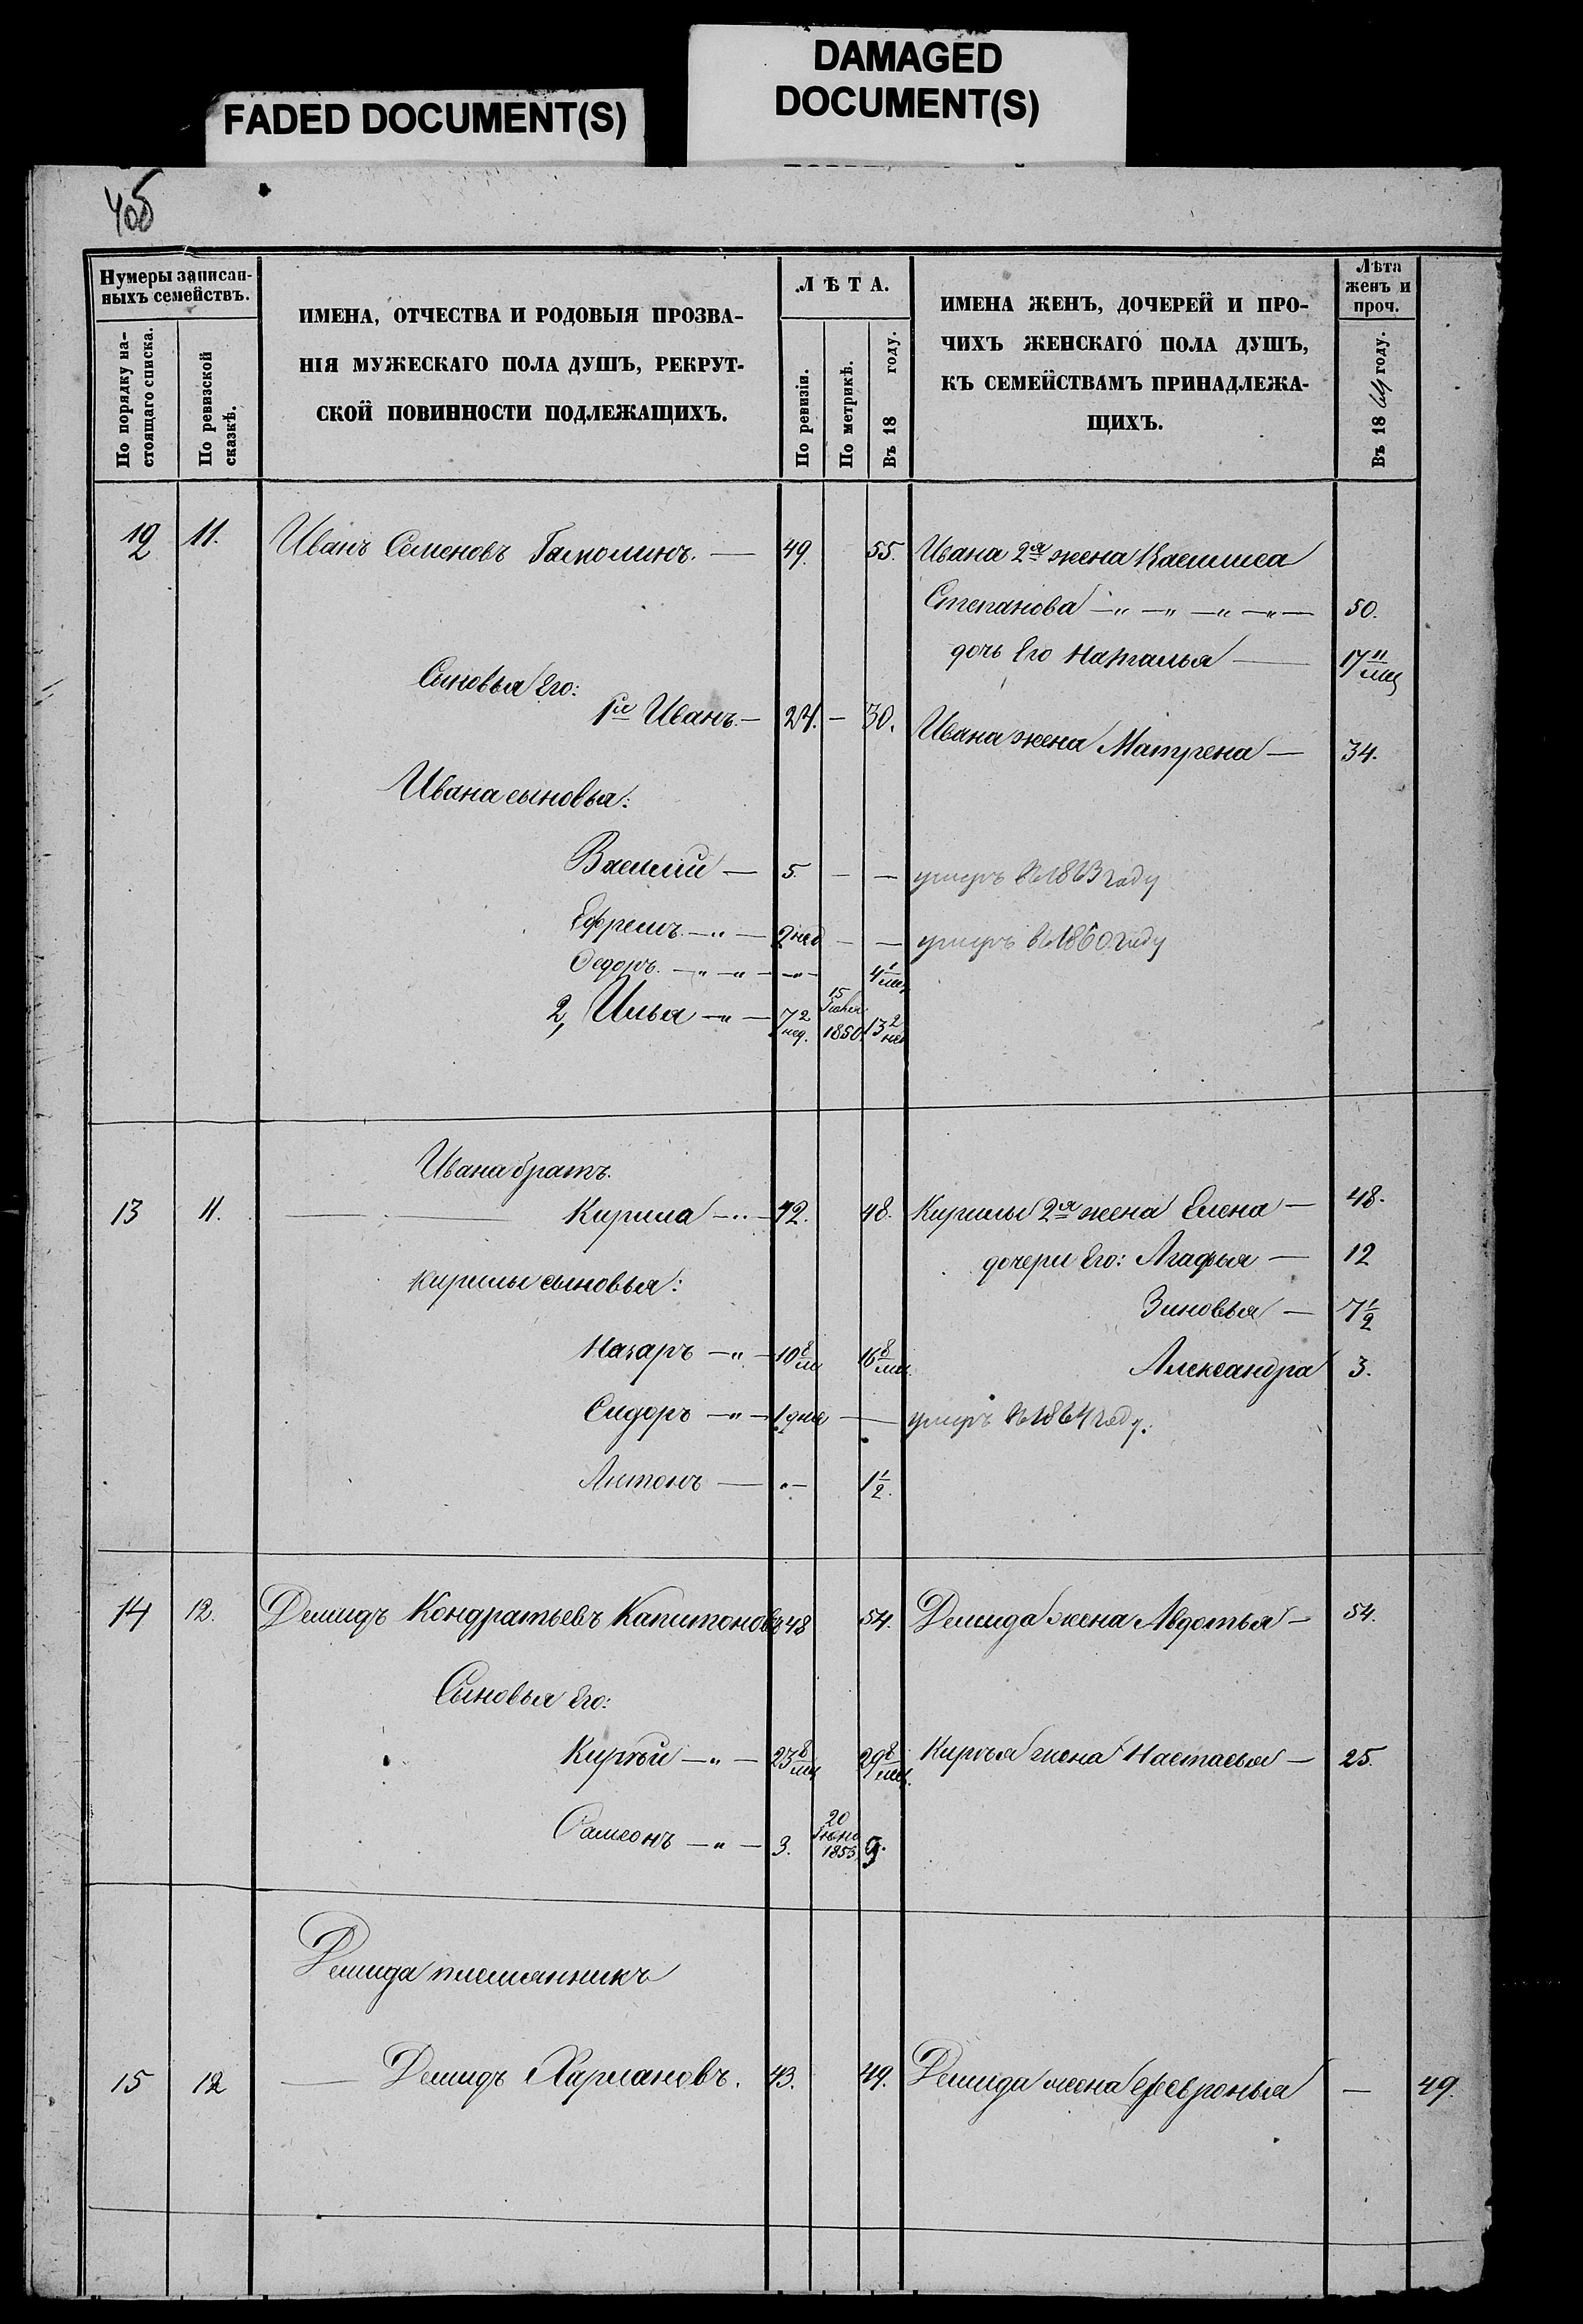 FADED DOCUMENT(S)
DAMAGED
DOCUMENT(S)
406
Нумеры записан-
ныхъ семействъ.
По порядку на-
стоящаго списка.
По ревизской
сказкѣ.
ИМЕНА, ОТЧЕСТВА И РОДОВЫЯ ПРОЗВА-
НІЯ МУЖЕСКАГО ПОЛА ДУШЪ, РЕКРУТ-
СКОЙ ПОВИННОСТИ ПОДЛЕЖАЩИХЪ.
ЛѢТА.
По ревизіи.
По метрикѣ.
Въ 18 году.
ИМЕНА ЖЕНЪ, ДОЧЕРЕЙ И ПРО-
ЧИХЪ ЖЕНСКАГО ПОЛА ДУШЪ,
КЪ СЕМЕЙСТВАМЪ ПРИНАДЛЕЖА-
ЩИХЪ.
Лѣта
женъ и
проч.
Въ 1864 году.
12 11. Иванъ Семеновъ 49. 55. Ивана 2я жена
Степанова 50.
дочь Его Наталья 17 11/мц
Сыновья Его:
1й Иванъ 24. 30. Ивана жена Матрена 34.
Ивана сыновья:
Василий 5. умеръ въ 1863 году
Ефремъ 2 нед умеръ въ 1860 году
Федоръ 4 1/мц
2, Илья 7 2/нед. 15 1850. 13 2/нед
Ивана братъ.
13 11. Кирила 42. 48. Кирилы 2я жена Елена 48.
дочери Его: Агафья 12
Кирилы сыновья:
Зиновья 7 1/2
Назаръ 10 8/мц 16 8/мц.
Александра 3.
Сидоръ 1 дня умеръ въ 1864 году.
Антонъ 1 1/2.
14 12. Демидъ Кондратьевъ Капитоновъ 48 54. Демида жена Авдотья 54.
Сыновья Его:
Кирѣй 23 8/мц 29 8/мц. Кирѣя жена Настасья 25.
Самсонъ 3. 20 Іюня 1855 9.
Демида племянникъ
15 12 Демидъ Харлановъ. 43. 49. Демида жена Февронья 49.